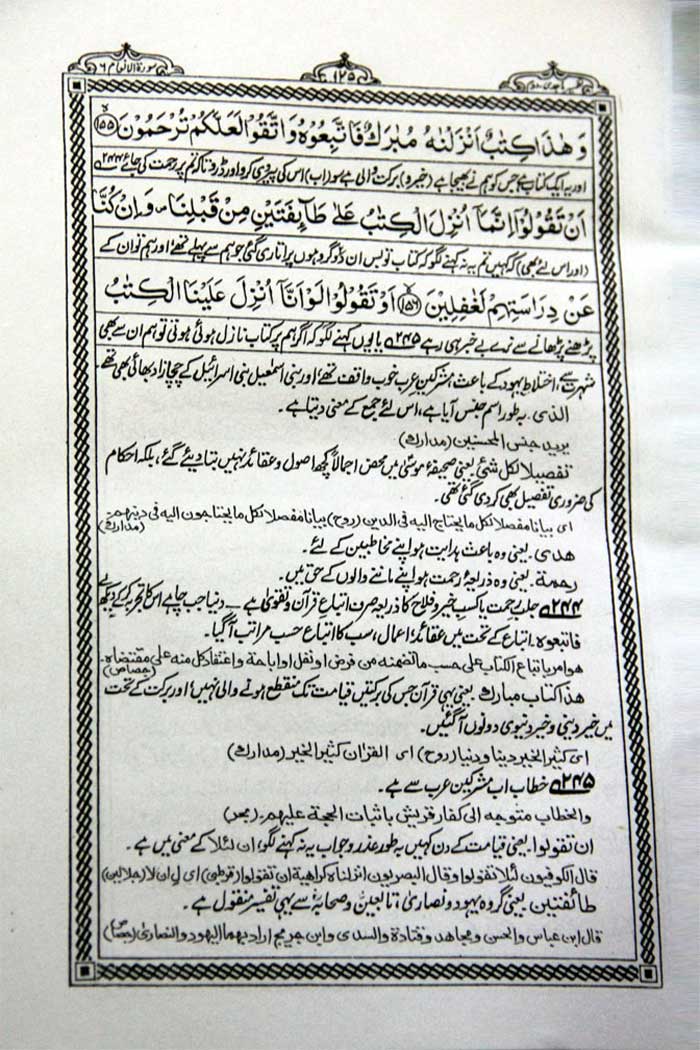 تفسیر ماجدی۔دوم ۱۲۵ سورۃ الانعام ۶
وَ هٰذَا كِتٰبٌ اَنْزَلْنٰهُ مُبٰرَكٌ فَاتَّبِعُوْهُ وَ اتَّقُوْا لَعَلَّكُمْ تُرْحَمُوْنَ ﴿۱۵۵﴾
اور یہ ایک کتاب ہے جس کو ہم نے بھیجا ہے (خیر و) برکت والی ہے سو (اب) اس کی پیروی کرو اور ڈرو تاکہ تم پر رحمت کی جائے ۲۴۴؎
اَنْ تَقُوْلُوْۤا اِنَّمَاۤ اُنْزِلَ الْكِتٰبُ عَلٰى طَآىِٕفَتَيْنِ مِنْ قَبْلِنَا۪ وَ اِنْ كُنَّا
(اور اس لئے بھی) کہ کہیں تم یہ نہ کہنے لگو کہ کتاب تو بس ان دو گروہوں پر اتاری گئی جو ہم سے پہلے تھے اور ہم تو ان کے
عَنْ دِرَاسَتِهِمْ لَغٰفِلِيْنَ ﴿۱۵۶﴾ اَوْ تَقُوْلُوْا لَوْ اَنَّاۤ اُنْزِلَ عَلَيْنَا الْكِتٰبُ
پڑھنے پڑھانے سے نرے بے خبر ہی رہے ۲۴۵؎ یا یوں کہنے لگو کہ اگر ہم پر کتاب نازل ہوئی ہوتی تو ہم ان سے بھی
شہرت سے، اختلاطِ یہود کے باعث مشرکینِ عرب خوب واقف تھے اور بنی اسمٰعیل بنی اسرائیل کے چچا زاد بھائی بھی تھے۔
الذی۔ بہ طور اسم جنس آیا ہے، اس لئے جمع کے معنی دیتا ہے۔
یرید جنس المحسنین (مدارك)
تفصیلا لکل شئ یعنی صحیفۂ موسیٰ میں محض اجمالاً کچھ اصول و عقائد نہیں بتا دیئے گئے، بلکہ احکام
کی ضروری تفصیل بھی کر دی گئی تھی۔
ای بیانا مفصلا لکل ما یحتاج الیه فی الدین (روح) بیانا مفصلا لکل ما یحتاجون الیه فی دینهم۔ (مدارك)
هدی۔ یعنی وہ باعث ہدایت ہو اپنے مخاطبین کے لئے۔
رحمة۔ یعنی وہ ذریعۂ رحمت ہو اپنے ماننے والوں کے حق میں۔
۲۴۴؎ جلبِ رحمت یا کسبِ خیر و فلاح کا ذریعہ صرف اتباع قرآن و تقویٰ ہے ۔ دنیا جب چاہے اس کا تجربہ کر کے دیکھ لے
فاتبعوہ۔ اتباع کے تحت میں عقائد، اعمال، سب کا اتباع حسب مراتب آ گیا۔
هو امر باتباع الکتاب علی حسب ما تضمنه من فرض او نفل او اباحة واعتقاد کل منه علی مقتضاه۔ (جصاص)
هذا کتاب مبارك یعنی یہی قرآن جس کی برکتیں قیامت تک منقطع ہونے والی نہیں! اور برکت کے تحت
میں خیر دینی و خیر دنیوی دونوں آ گئیں۔
ای کثیر الخیر دینا و دنیا (روح) ای القرآن کثیر الخیر (مدارك)
۲۴۵؎ خطاب اب مشرکین عرب سے ہے۔
والخطاب متوجه الی کفار قریش باثبات الحجة علیهم۔ (بحر)
ان تقولوا یعنی قیامت کے دن کہیں بہ طور عذر و جواب یہ نہ کہنے لگو! ان لئلا کے معنی میں ہے۔
قال الکوفیون لئلا تقولوا وقال البصریون انزلناه کراهیة ان تقولوا (قرطبی) ای لِاَن لا (جلالین)
طائفتین یعنی گروہ یہود و نصاریٰ، تابعینؒ و صحابہؓ سے یہی تفسیر منقول ہے۔
قال ابن عباس والحسن ومجاهد وقتادة والسدی وابن جریج اراد بهما الیهود والنصاریٰ (جصاص)